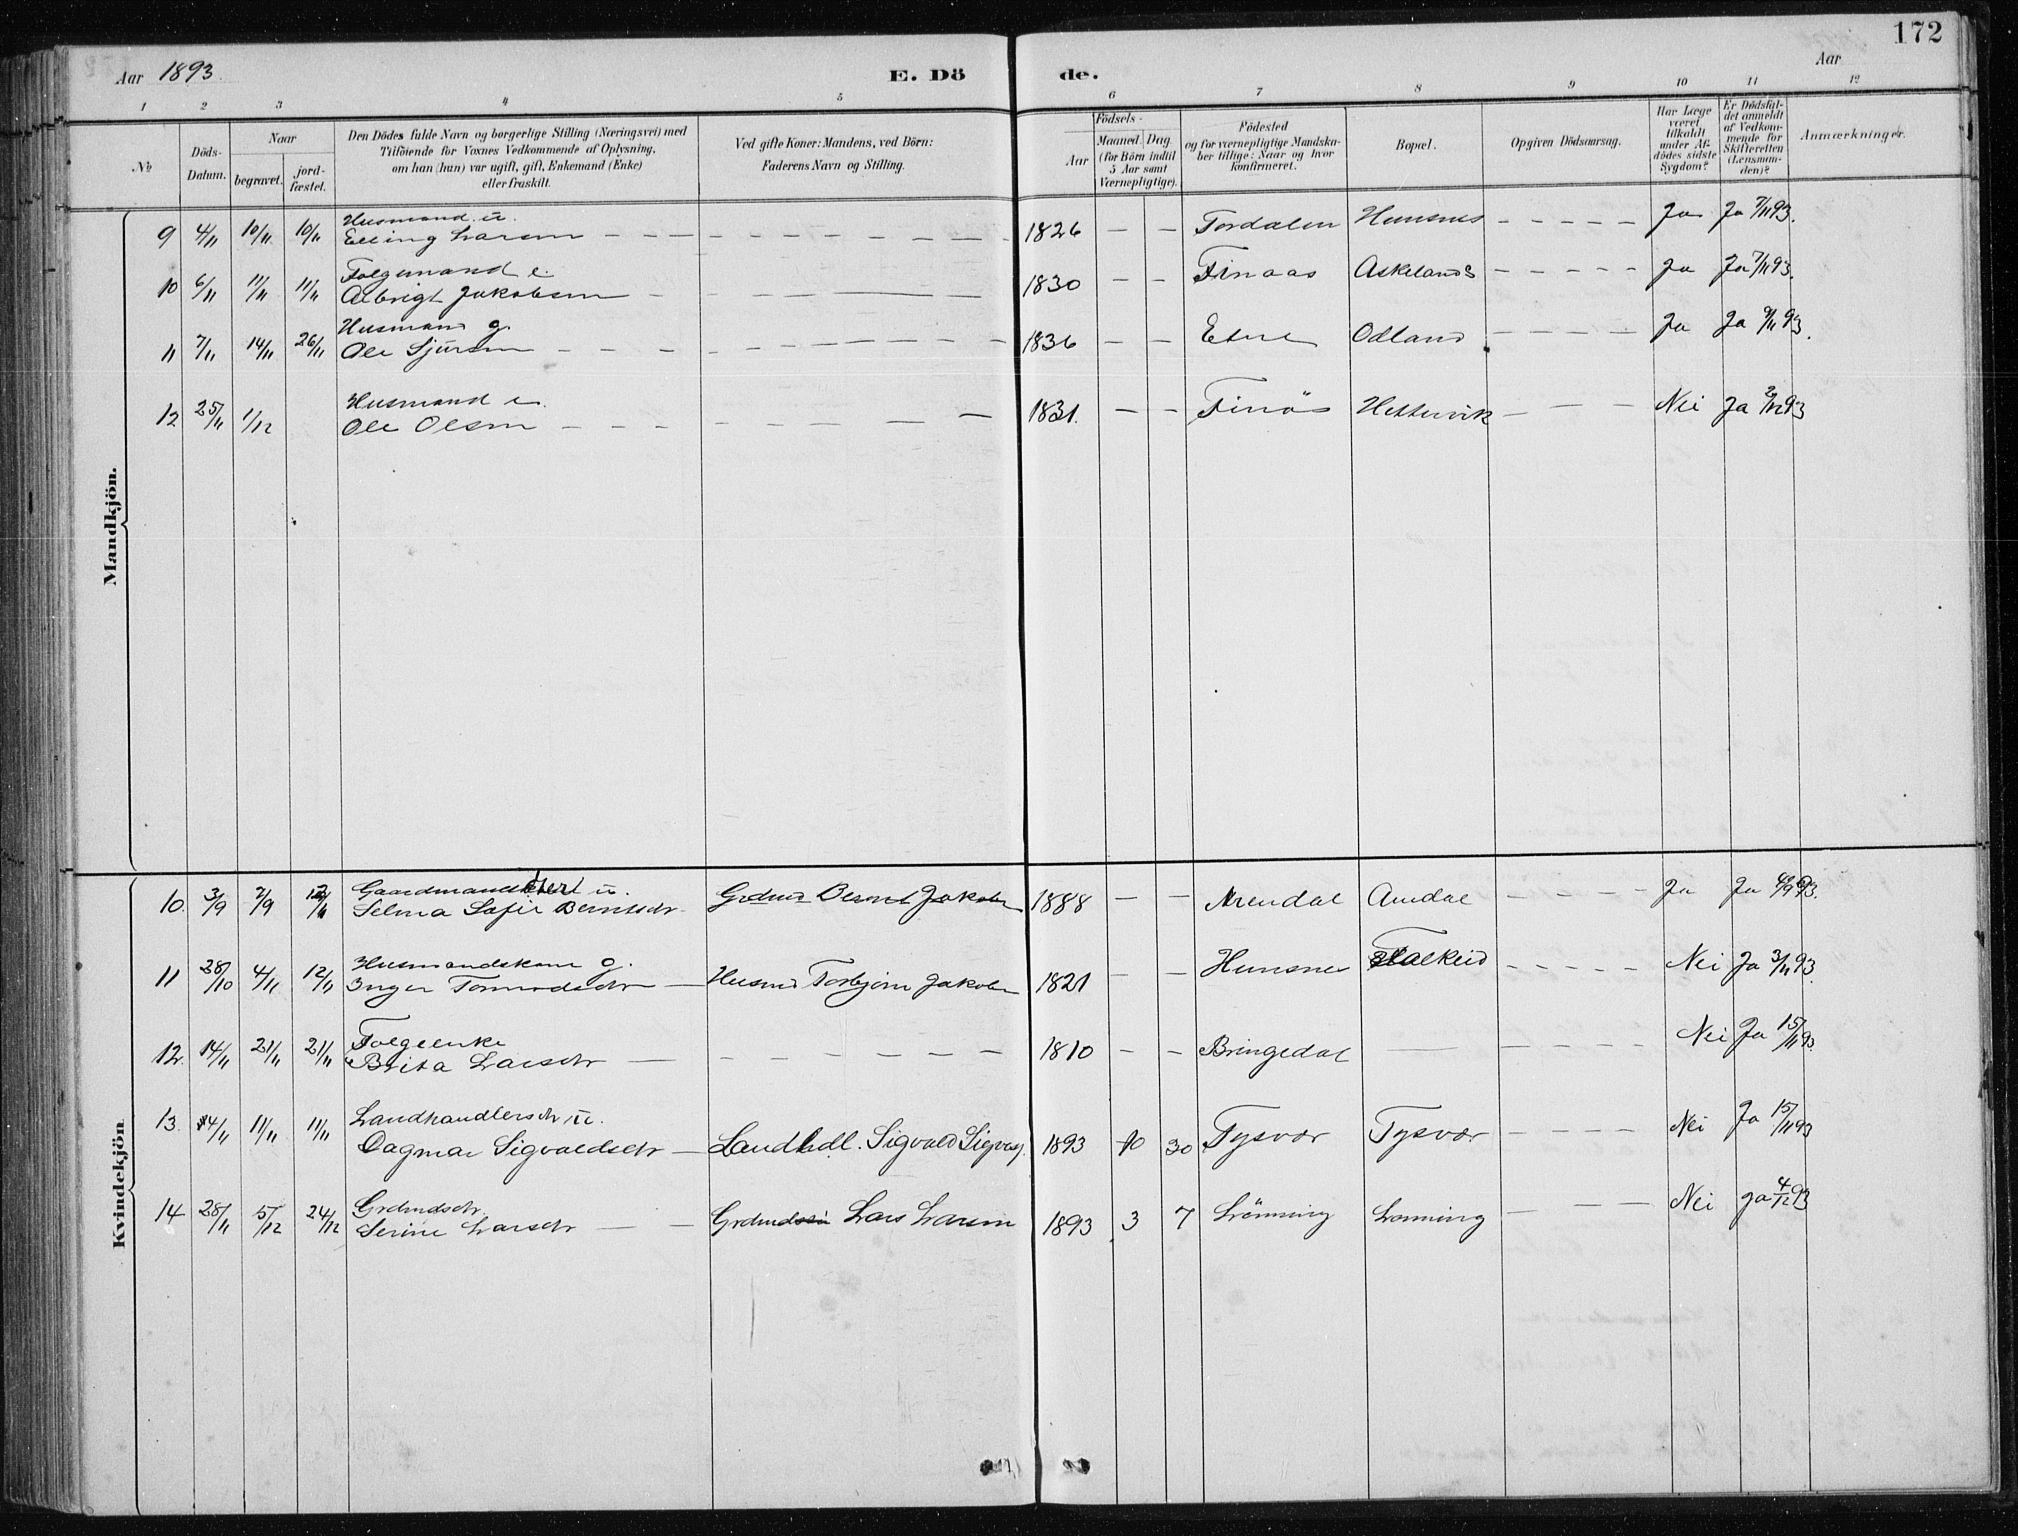 172
Aar 1893
E. Dö
de.
Aar
1 2 3 4 5 6 7 8 9 10 11 12
No
Döds-Datum.
Naar
begravet.
jord-fæstet.
Den Dödes fulde Navn og borgerlige Stilling (Næringsvei) med
Tilföiende for Voxnes Vedkommende af Oplysning,
om han (hun) var ugift, gift, Enkemand (Enke)
eller fraskilt.
Ved gifte Koner: Mandens, ved Börn:
Faderens Navn og Stilling.
Födsels-
Aar
Maaned. Dag.
(for Börn indtil
5 Aar samt
Værnepligtige).
Födested
og for værnepligtige Mandska-
ber tillige: Naar og hvor
konfirmeret.
Bopæl.
Opgiven Dödsaarsag.
Har Læge
været
tilkaldt
under Af-
dödes sidste
Sygdom?
Er Dödsfal-
det anmeldt
af Vedkom-
mende for
Skifteretten
(Lensman-
den)?
Anmærkninger.
Mandkjön.
Husmand u.
9 4/11 10/11 10/11 Elling Larsen 1826 Fordalen Hunsnes Ja Ja 7/11 93.
Folgemand e.
10 6/11 11/11 11/11 Albrigt Jakobsen 1830 Finaas Askeland Ja Ja 7/11 93.
Husmand g.
11 7/11 14/11 26/11 Ole Sjursen 1836 Etne Odland Ja Ja 9/11 93.
Husmand e.
12 25/11 1/12 Ole Olsen 1831. Finös Hettervik Nei Ja 2/12 93
Kvindekjön
Gaardmandsdatter u.
10. 3/9 7/9 Selma Sofie Berntsdr. Grdmd Bernt Jakobs 1888 Arendal Amdal Ja Ja 93.
Husmandskone g.
11 28/10 4/11 12/11 Inger Tormodsdr Husmd Torbjørn Jakobs 1821 Hunsnes Nei Ja 3/11 93.
Folgeenke
12. 14/11 21/11 21/11 Brita Larsdr 1810 Bringedal Nei Ja 15/11 93.
Landhandlersdr u.
13. 4/11 11/11 11/11 Dagmar Sigvaldsdr Landhdl. Sigvald 1893 10 30 Tysvær Tysvær Nei Ja 15/11 93
Grdmdsdr.
14 28/11 5/12 24/12 Serine Larsdr Lars Larsen 1893 3 7 Lönning Lonning Nei Ja 4/12 93